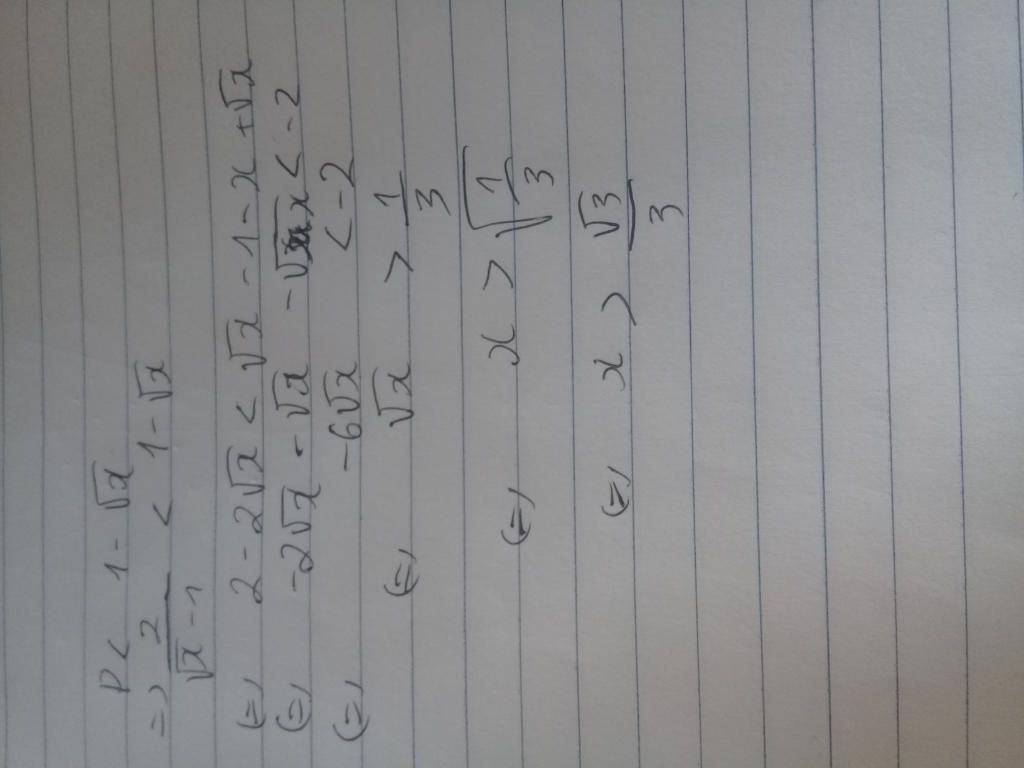 P < 1 - √x
=> 2/(√x - 1) < 1 - √x
(=) 2 - 2√x < √x - 1 - x + √x
(=) -2√x - √x - √x < -2
(=) -6√x < -2
(=) √x > 1/3
(=) x > √(1/3)
(=) x > √3/3